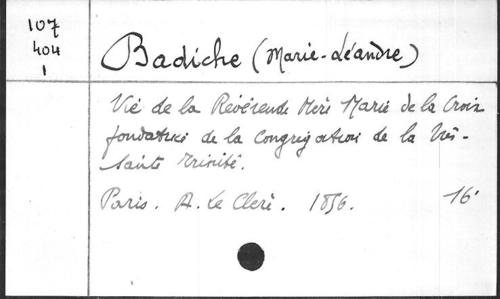 107
404
1
Badiche (Marie-Léandre)
Vie de la Révérende Mère Marie de la Croix
fondatrice de la Congrégation de la Très-
Sainte Trinité.
Paris. A. Le Clere. 1856. 16°